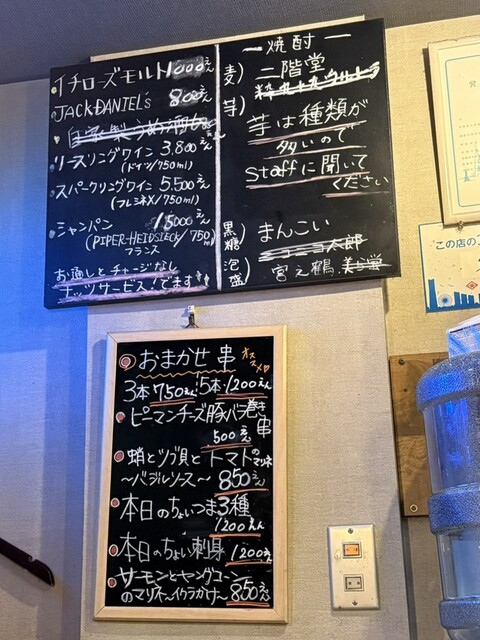 イチローズモルト 1000えん
JACK DANIEL'S 800えん
自家製うめ酒
リースリングワイン 3,800えん
(ドイツ/750ml)
スパークリングワイン 5,500えん
(フレシネX/750ml)
シャンパン 15000えん
(PIPER-HEIDSIECK/750ml)
フランス
お通しとチャージなし
ナッツサービス!でます
ー焼酎ー
麦) 二階堂
芋) 芋は種類が
多いので
Staffに聞いて
ください
黒糖) まんこい
太郎
泡盛) 宮之鶴
この店の
おまかせ串 オススメ
3本750えん 5本1200えん
ピーマンチーズ豚バラ巻き串
500えん
蛸とツブ貝とトマトのマリネ
〜バジルソース〜 850えん
本日のちょいつま3種
1200えん
本日のちょい刺身 1200えん
サーモンとヤングコーン
のマリネ〜イクラがけ〜 850えん